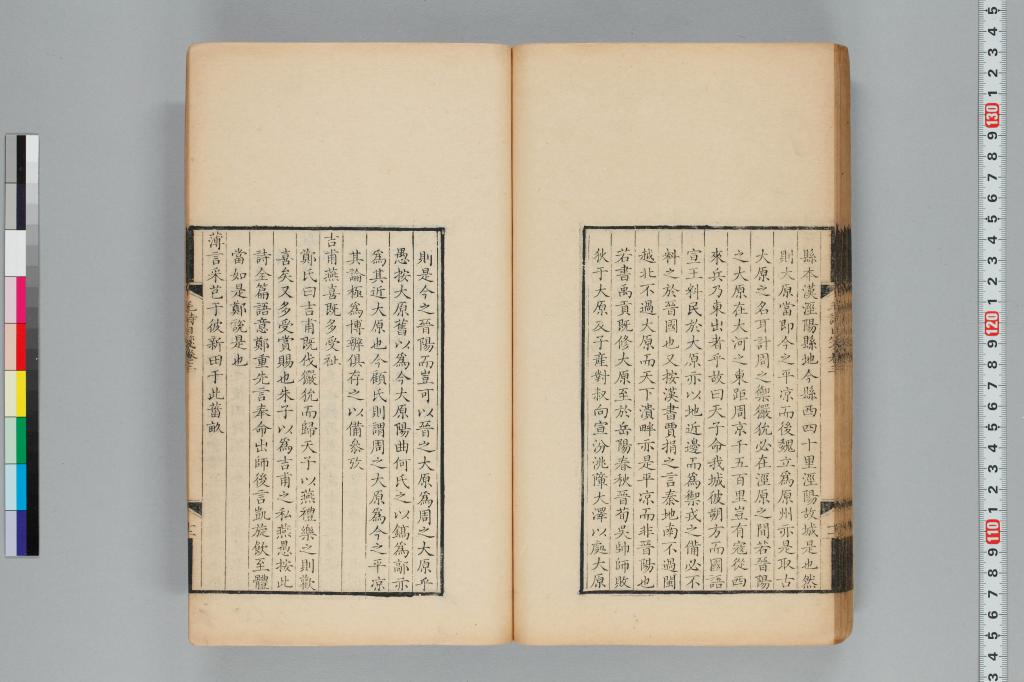 縣本漢涇陽縣地今縣西四十里涇陽故城是也然
則大原當即今之平涼而後魏立為原州亦是取古
大原之名可計周之禦玁狁必在涇原之間若晉陽
之大原在大河之東距周京千五百里豈有寇從西
來兵乃東出者乎故曰天子命我城彼朔方而國語
宣王料民於大原亦以地近邊而為禦戎之備必不
料之於晉國也又按漢書賈捐之言秦地南不過閩
越北不過大原而天下潰畔亦是平涼而非晉陽也
若書禹貢既修大原至於岳陽春秋晉荀吳帥師敗
狄于大原及子產對叔向宣汾洮障大澤以處大原
則是今之晉陽而豈可以晉之大原為周之大原乎
愚按大原舊以為今大原陽曲何氏之以鎬為鄗亦
為其近大原也今顧氏則謂周之大原為今之平涼
其論極為博辨俱存之以備叅攷
吉甫燕喜既多受祉
鄭氏曰吉甫既伐玁狁而歸天子以燕禮樂之則歡
喜矣又多受賞賜也朱子以為吉甫之私燕愚按此
詩全篇語意鄭重先言奉命出師後言凱旋飲至體
當如是鄭說是也
薄言采芑于彼新田于此菑畝